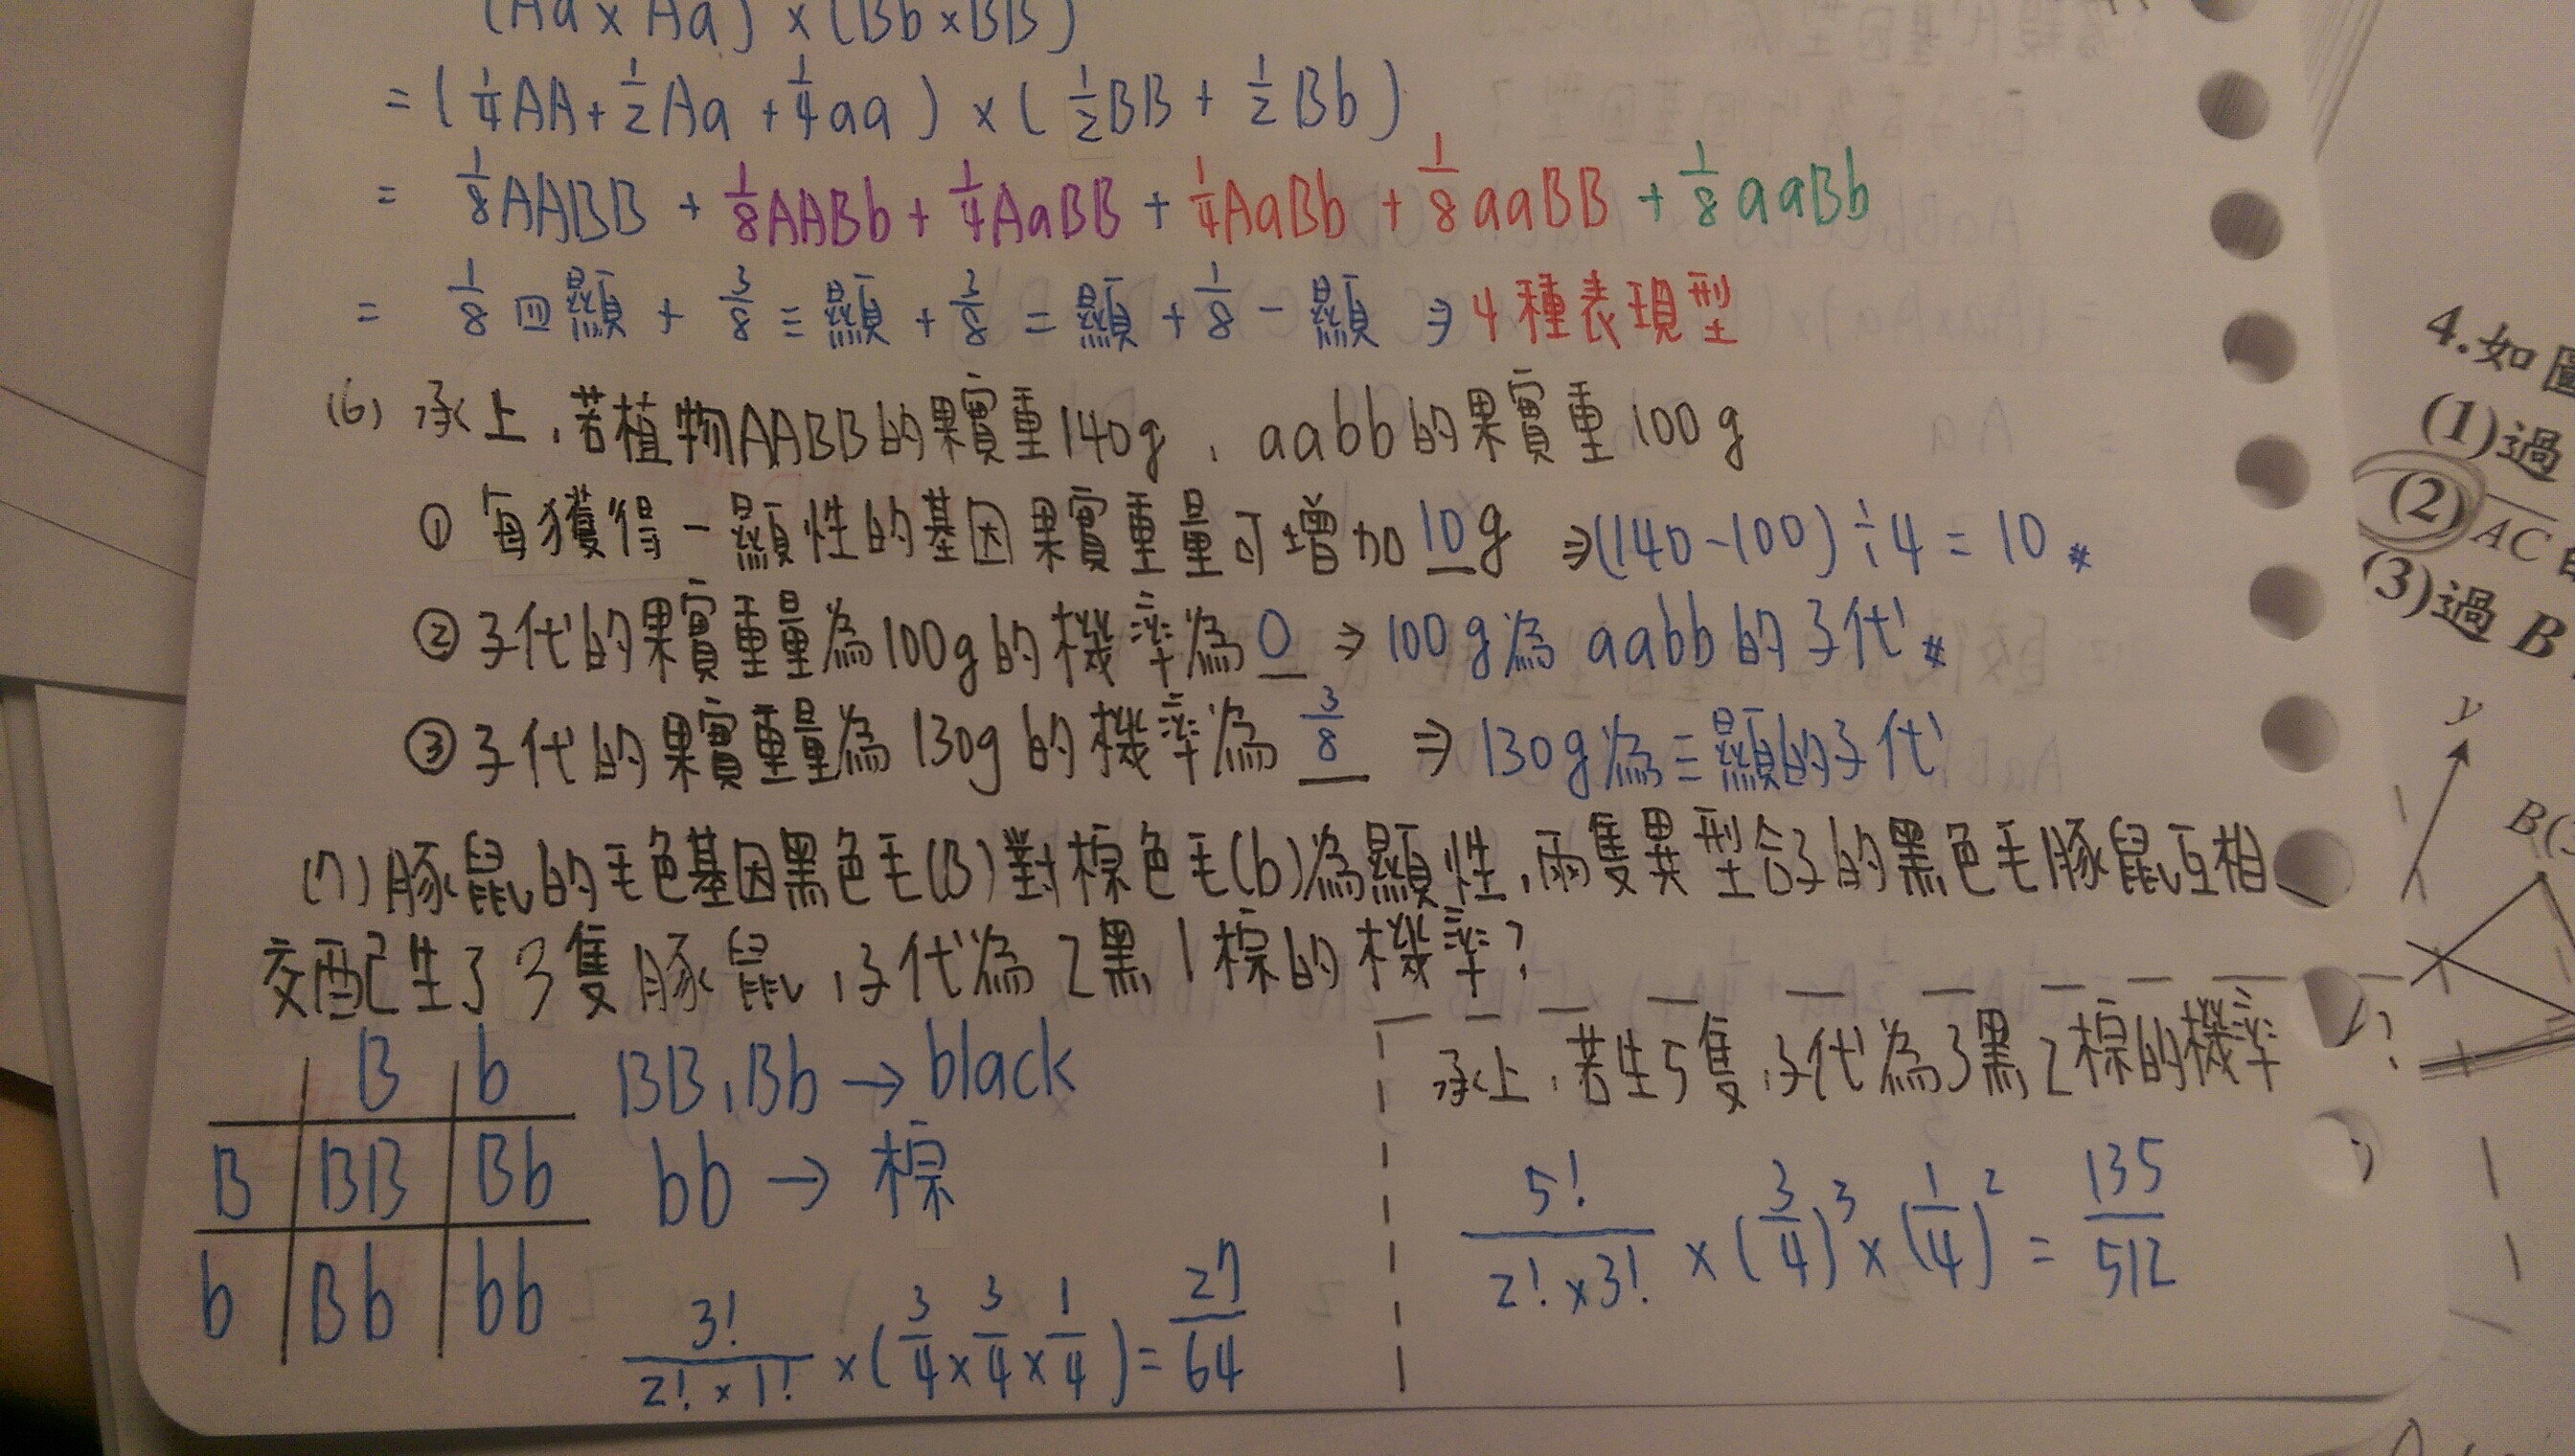 (Aa × Aa) × (Bb × BB)
= ( 1/4 AA + 1/2 Aa + 1/4 aa ) × ( 1/2 BB + 1/2 Bb )
= 1/8 AABB + 1/8 AABb + 1/4 AaBB + 1/4 AaBb + 1/8 aaBB + 1/8 aaBb
= 1/8 四顯 + 3/8 三顯 + 3/8 二顯 + 1/8 一顯 ⇒ 4種表現型
(6) 承上,若植物AABB的果實重140g,aabb的果實重100g
① 每獲得一顯性的基因果實重量可增加10g ⇒ (140-100)÷4=10 #
② 子代的果實重量為100g的機率為 0 ⇒ 100g為 aabb 的子代 #
③ 子代的果實重量為130g的機率為 3/8 ⇒ 130g為三顯的子代
(7) 豚鼠的毛色基因黑色毛(B)對棕色毛(b)為顯性,兩隻異型合子的黑色毛豚鼠互相
交配生了3隻豚鼠,子代為2黑1棕的機率?
B b
B BB Bb
b Bb bb
BB,Bb → black
bb → 棕
3!/(2!×1!) × ( 3/4 × 3/4 × 1/4 ) = 27/64
承上,若生5隻,子代為3黑2棕的機率?
5!/(2!×3!) × (3/4)³ × (1/4)² = 135/512
4.如
(1)過
(2) AC
(3)過 B
y
B(